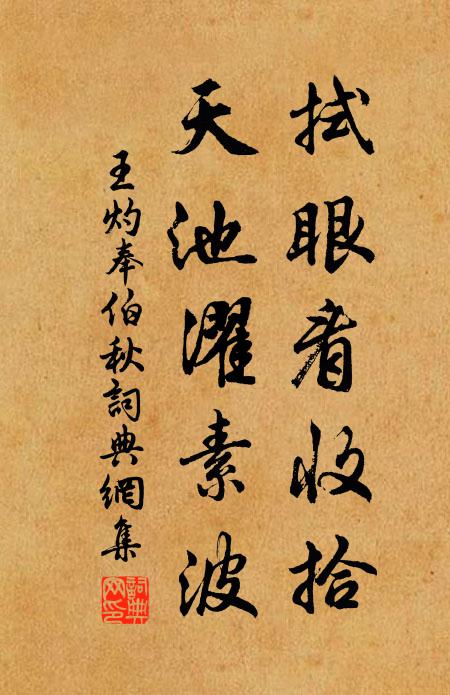 拭眼看收拾
天池濯素波
王灼奉伯秋詞典網集
詞典网印